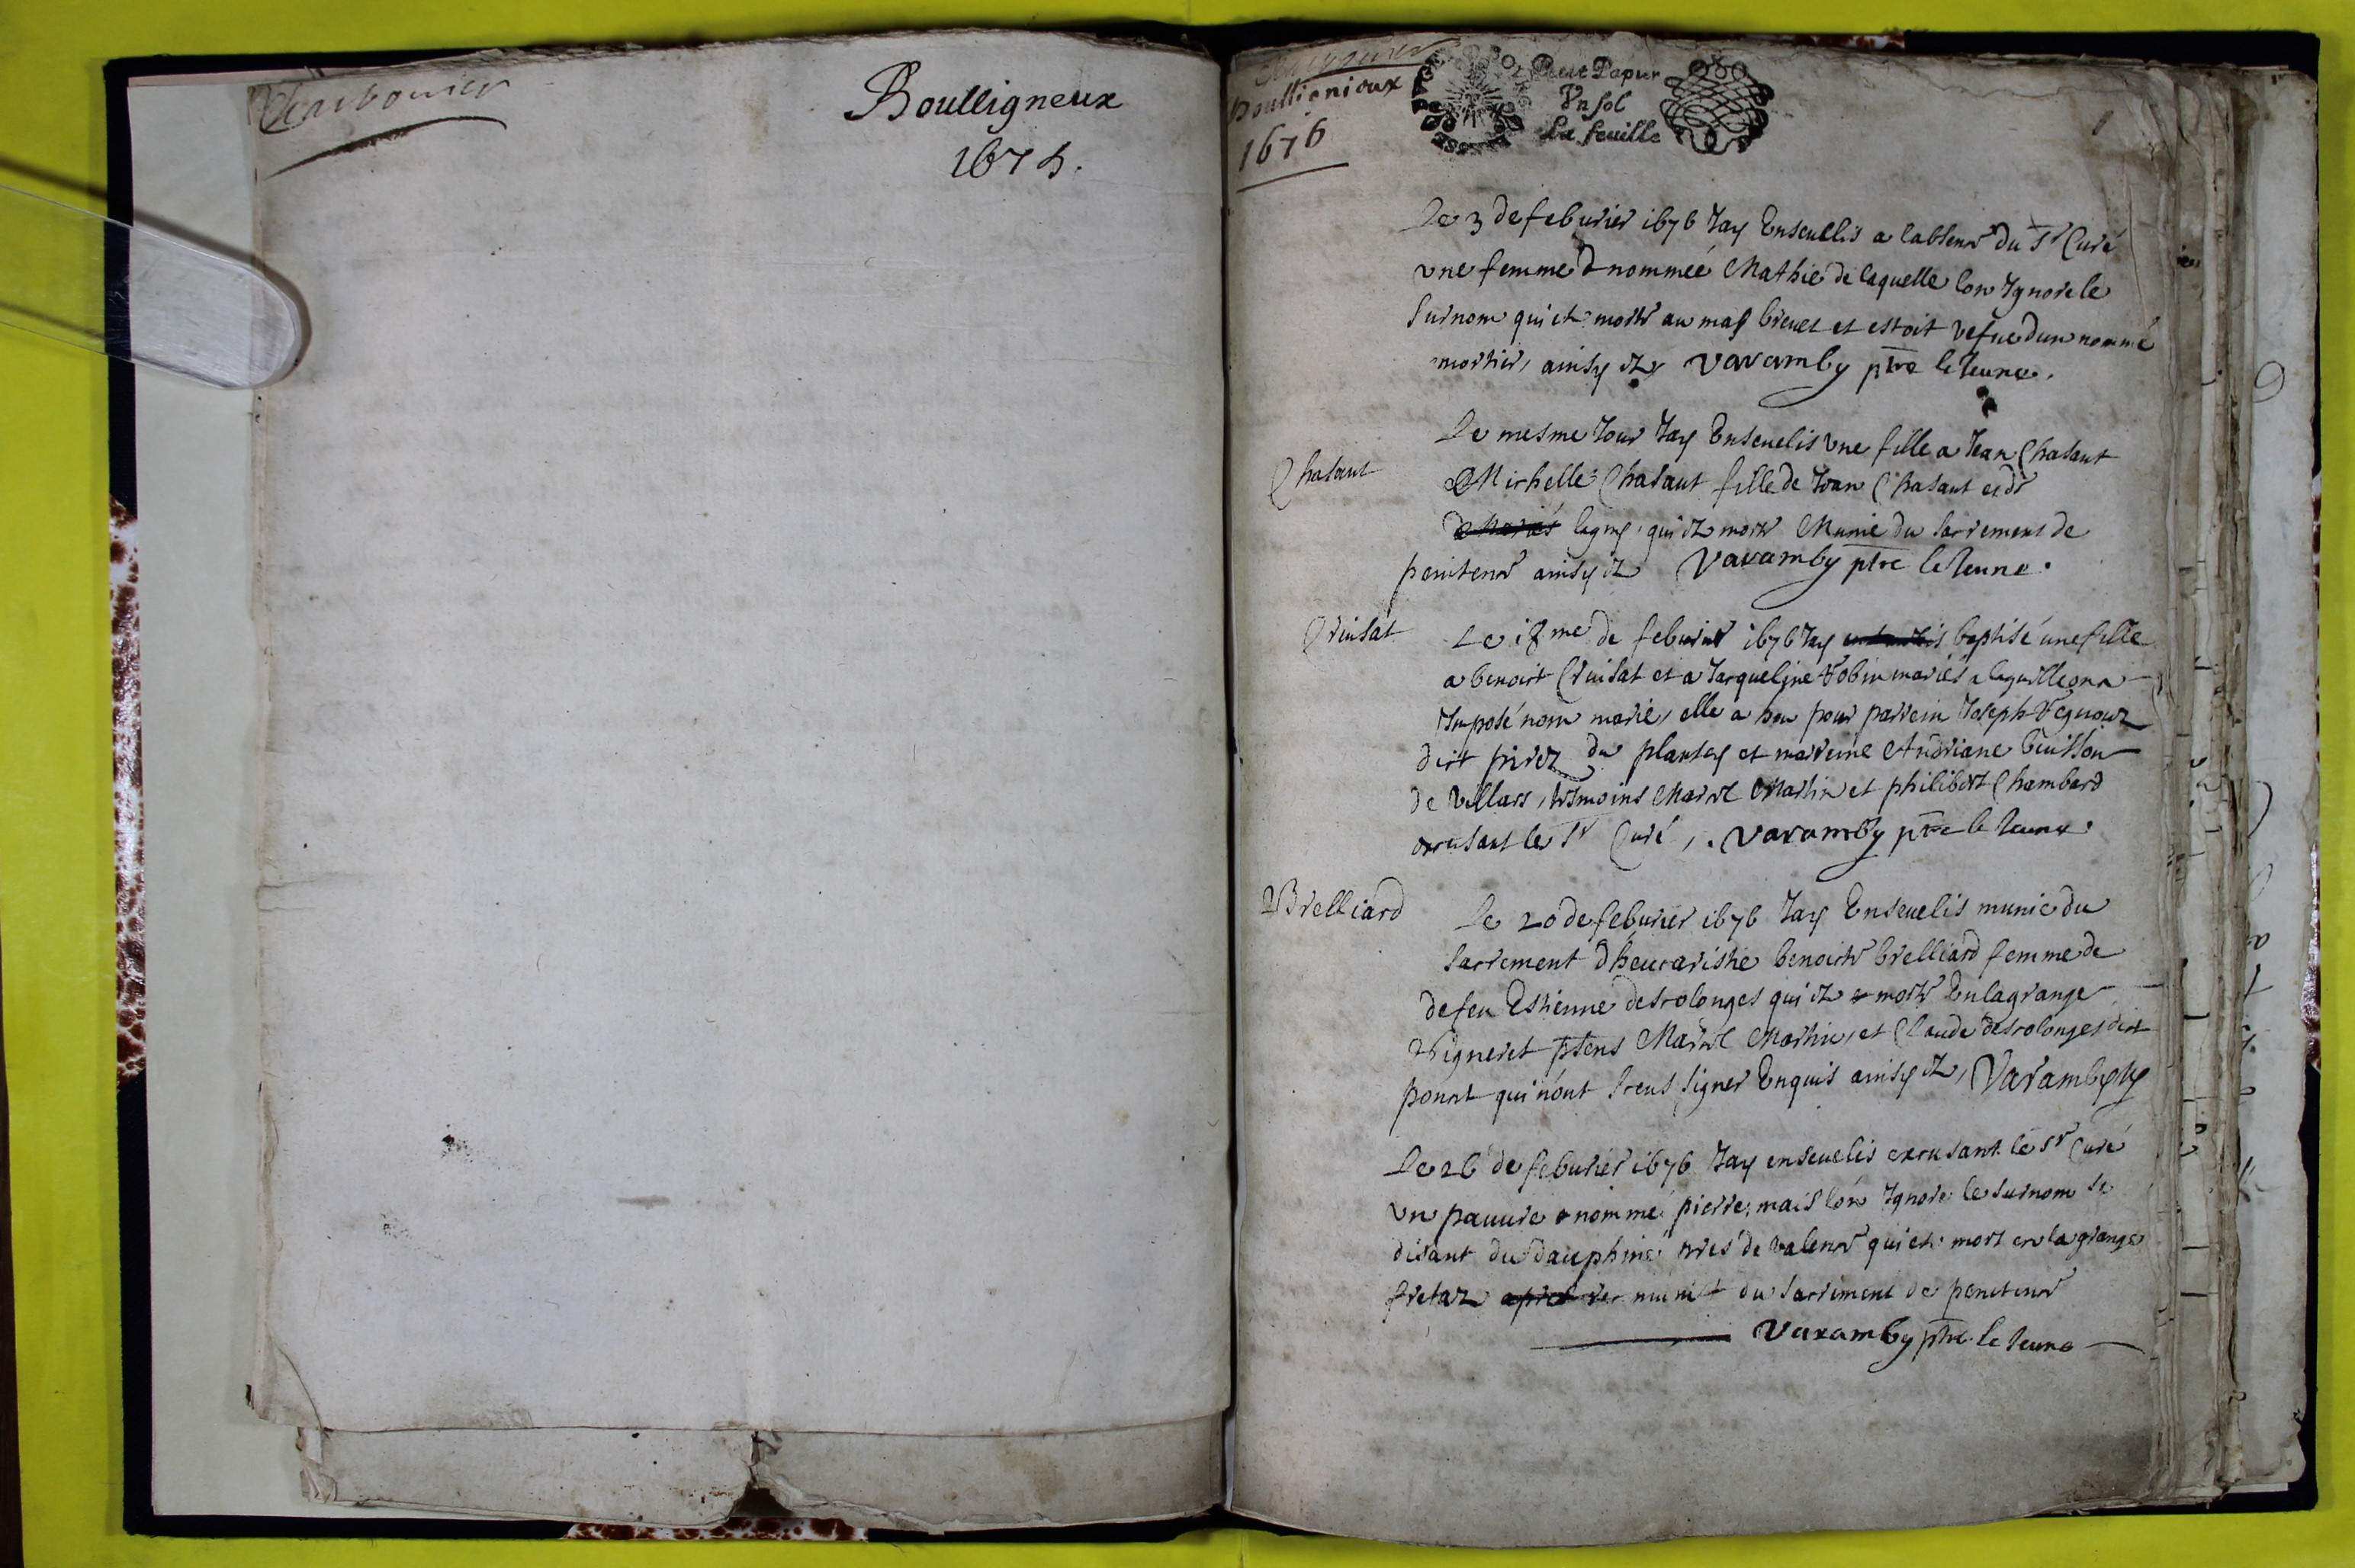 Boulligneux
1675.
Boullionioux
1676
Petit Papier
Un sol
La feuille
Le 3 de feburier 1676 Jay Enseuelis a labsence du Sr Curé
vne femme nommeé Mathie de laquelle lon Ignore le
surnom qui est morte au mas breuet et estoit vefue dun nommé
mortier, ainsy est Varamby ptre le Jeune.
Chasaut
Le mesme Jour Jay Enseuelis vne fille a Jean Chasaut
Michelle Chasaut fille de Jean Chasaut et de
qui est morte Munie du sacrement de
penitence ainsy est Varamby ptre le Jeune.
Cruisat
Le 18me de feburier 1676 Jay baptisé une fille
a benoist Cruisat et a Jacqueline Robin mariés a laquelle on a
Imposé nom marie, elle a heu pour parrein Joseph
dict du plantey et marreine Andriane buisson
de Villars, tesmoins Marc Martin et philibert Chambard
excusant le Sr Curé, Varamby ptre le Jeune.
Brelliard
Le 20 de feburier 1676 Jay Enseuelis munie du
sacrement dheucaristie benoiste brelliard femme de
defeu Estienne descolonges qui est morte En la grange
Vigneret ptens Marc Martin, et Claude descolonges dict
ponat qui nont sceus signer Enquis ainsy est, Varamby
Le 26 de feburier 1676 Jay enseuelis excusant le Sr Curé
vn pauure nommé pierre, mais lon Ignore le surnom se
disant du dauphiné pres de valence qui est mort en la grange
fretaz munit du sacrement de penitence
Varamby ptre le Jeune